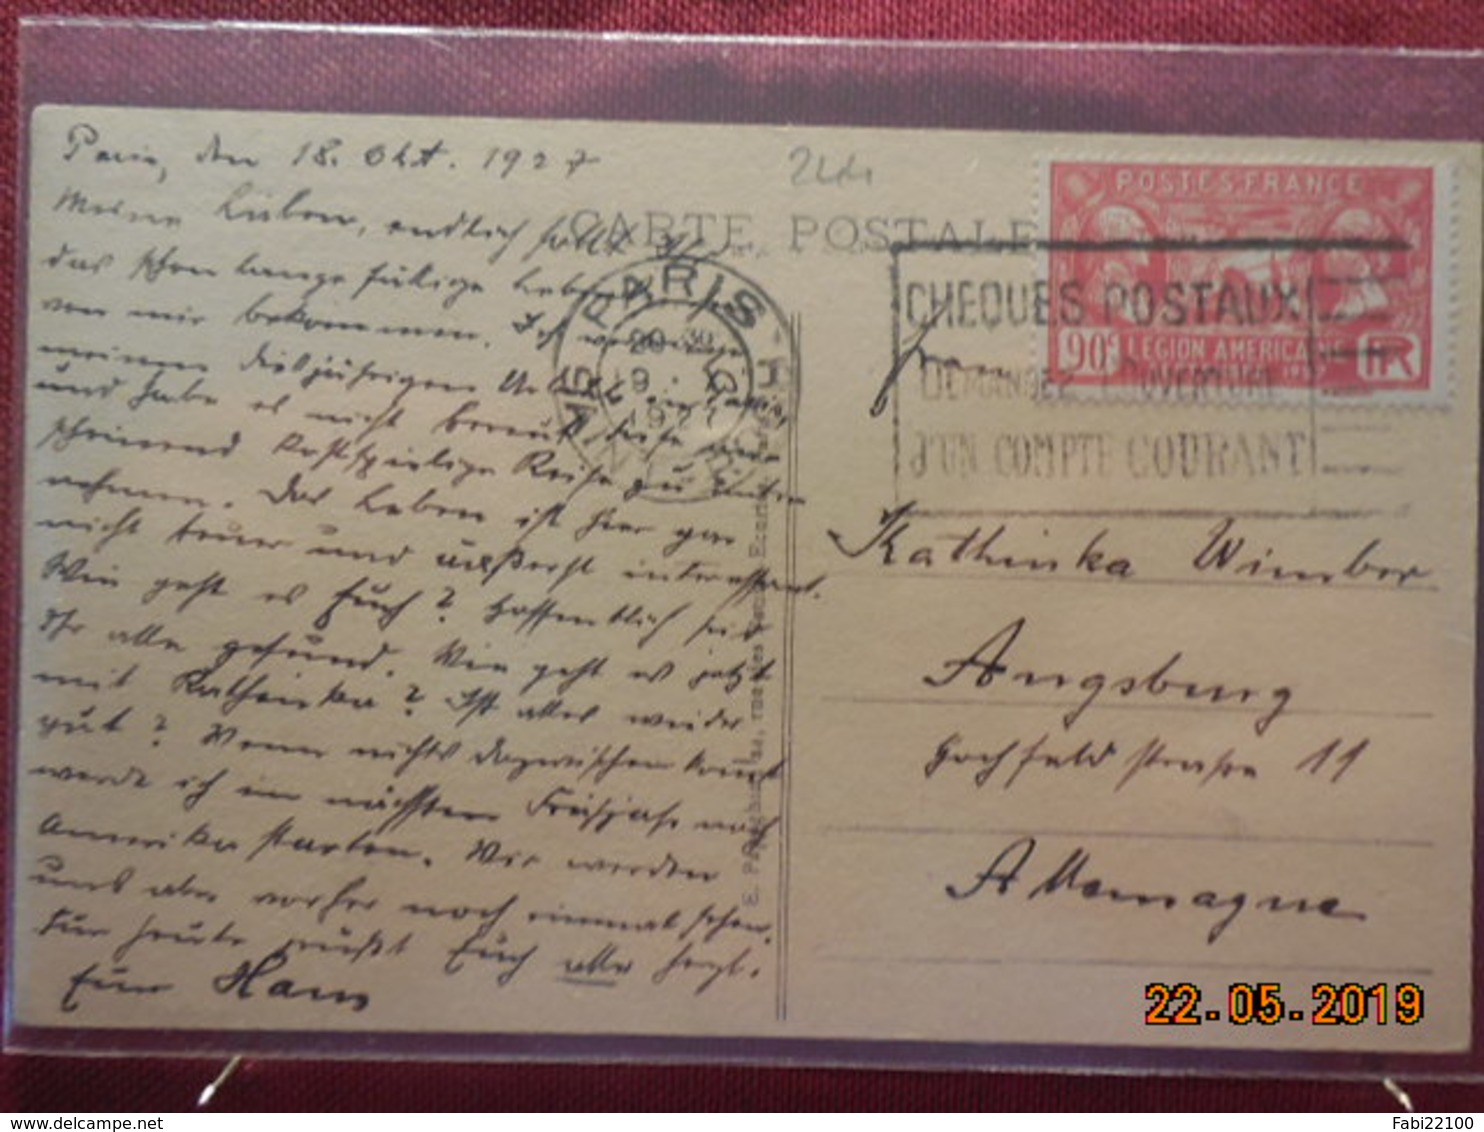 Paris, den 18. Okt. 1927
Meine Lieben, endlich sollt Ihr
das schon lange fällige Lebens
von mir bekommen. Ich verbringe
meinen diesjährigen Urlaub in Paris,
und habe es nicht bereut diese
scheinend kostspielige Reise zu unter
nehmen. Das Leben ist hier gar
nicht teuer und äußerst interessant.
Wie geht es Euch? Hoffentlich seid
Ihr alle gesund. Wie geht es jetzt
mit Kathinka? Ist alles wieder
gut? Wenn nichts dazwischen kommt
werde ich im nächsten Frühjahr nach
Amerika starten. Wir werden
uns aber vorher noch einmal sehen.
Für heute grüßt Euch alle herzl.
Euer Hans
244
CARTE POSTALE
PARIS
POSTES FRANCE
90c LEGION AMERICAINE RF
CHEQUES POSTAUX
DEMANDEZ L'OUVERTURE
D'UN COMPTE COURANT
Kathinka Wimber
Augsburg
Hochfeldstrasse 11
Allemagne
22.05.2019
Fabi22100